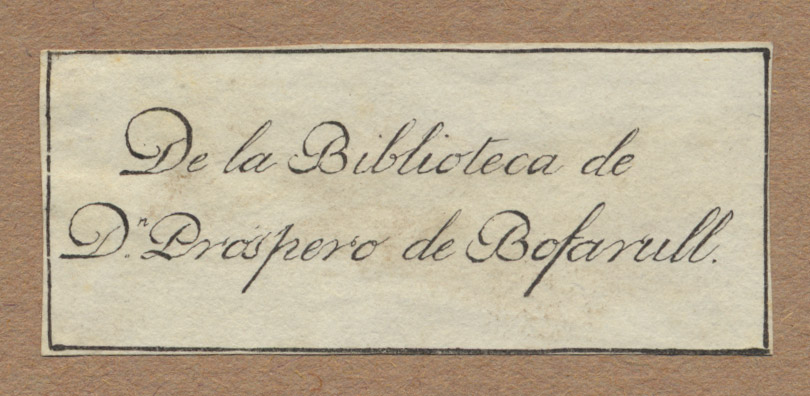 De la Biblioteca de
D.ⁿ Prospero de Bofarull.